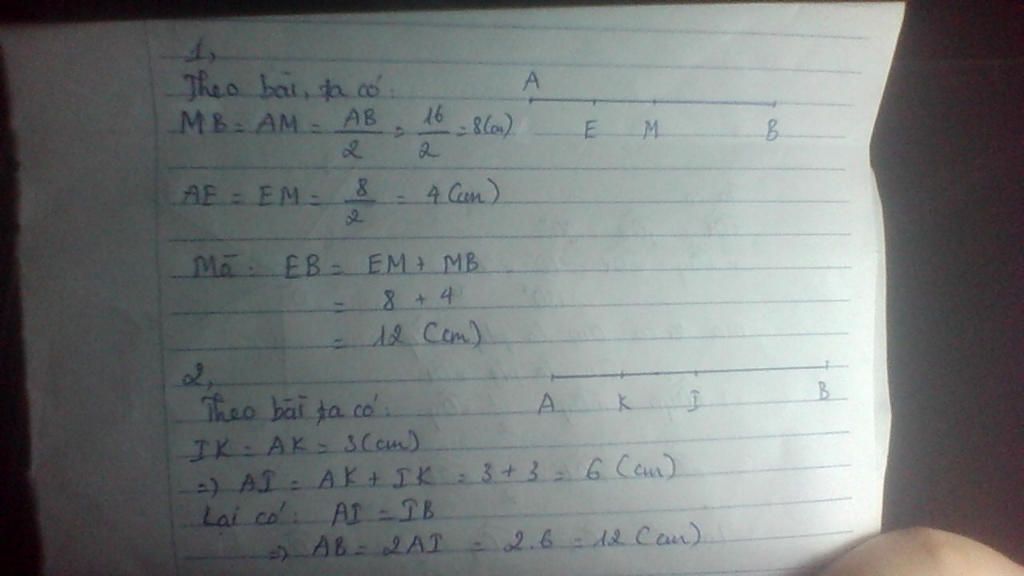 1,
Theo bài, ta có:
A
MB = AM = AB/2 = 16/2 = 8(cm)
E M B
AE = EM = 8/2 = 4(cm)
Mà: EB = EM + MB
= 8 + 4
= 12 (cm)
2,
A K I B
Theo bài ta có:
IK = AK = 3(cm)
=> AI = AK + IK = 3 + 3 = 6 (cm)
Lại có: AI = IB
=> AB = 2AI = 2.6 = 12 (cm)